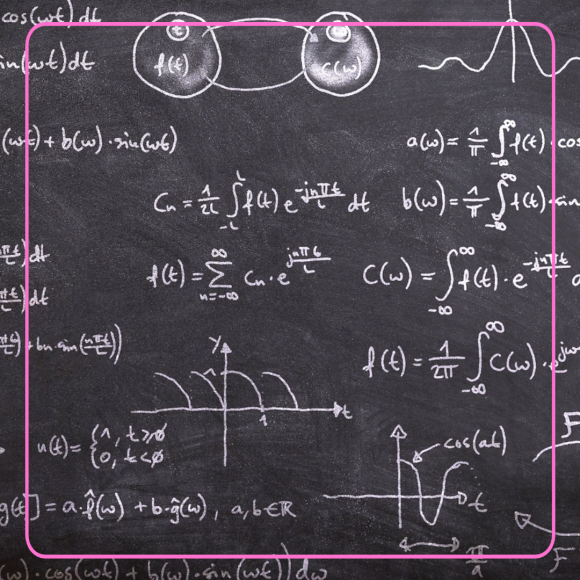 cos(ωt)dt
in(ωt)dt
f(t) C(ω)
(ωt) + b(ω) · sin(ωt)
a(ω) = 1/π ∫_{-∞}^{∞} f(t) · cos
C_n = 1/2L ∫_{-L}^{L} f(t) e^{-jnπt/L} dt
b(ω) = 1/π ∫_{-∞}^{∞} f(t) · sin
nπt/L) dt
f(t) = ∑_{n=-∞}^{∞} C_n · e^{jnπt/L}
C(ω) = ∫_{-∞}^{∞} f(t) · e^{-jnπt/L}
nπt/L) dt
+ bn · sin(nπt/L))
f(t) = 1/2π ∫_{-∞}^{∞} C(ω) · e^{jω
y
t
1
u(t) = {1, t≥0
{0, t<0
cos(at)
t
π/a
g(t)] = a · f̂(ω) + b · ĝ(ω), a, b ∈ ℝ
F
F
(ω) · cos(ωt) + b(ω) · sin(ωt)) dω